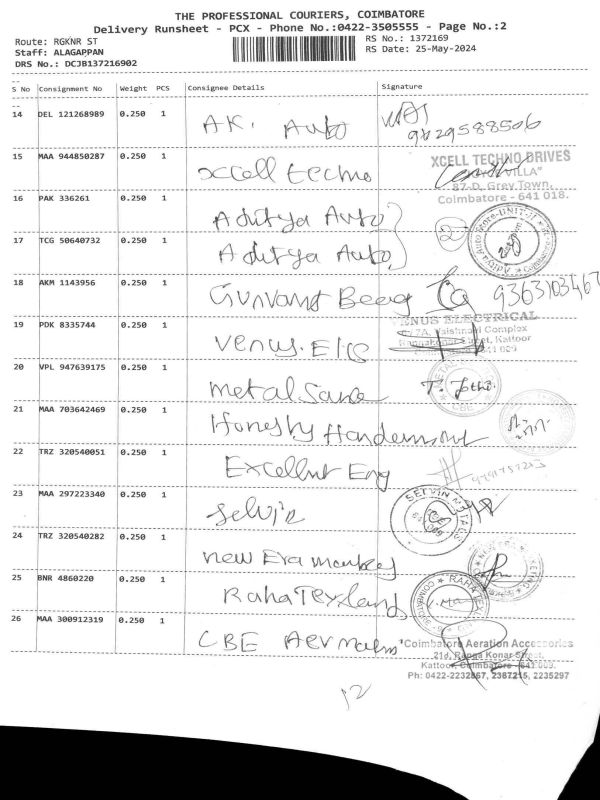 THE PROFESSIONAL COURIERS, COIMBATORE
Delivery Runsheet - PCX - Phone No.:0422-3505555 - Page No.:2
Route: RGKNR ST
RS No.: 1372169
Staff: ALAGAPPAN
RS Date: 25-May-2024
DRS No.: DCJB137216902
S No Consignment No Weight PCS Consignee Details Signature
14 DEL 121268989 0.250 1 AK. Auto
9629588506
15 MAA 944850287 0.250 1 xcell techno XCELL TECHNO DRIVES
VILLA"
87-D, Grey Town,
Coimbatore - 641 018.
16 PAK 336261 0.250 1 Aditya Auto
2
17 TCG 50640732 0.250 1 Aditya Auto
18 AKM 1143956 0.250 1 Gunvant Beag 9363103467
19 PDK 8335744 0.250 1 Venus. Elcs VENUS ELECTRICAL
Complex
Street, Kattoor
20 VPL 947639175 0.250 1 metal Sane
CBE
21 MAA 703642469 0.250 1
22 TRZ 320540051 0.250 1 Excellent Eng
23 MAA 297223340 0.250 1 Selvin SELVIN METALS
24 TRZ 320540282 0.250 1 new Era
25 BNR 4860220 0.250 1 Raha Texlands RAHA TEX
26 MAA 300912319 0.250 1 CBE "Coimbatore Aeration Accessories
21d, Ranga Konar Street,
Kattoor, Coimbatore - 641 009.
Ph: 0422-2232867, 2387215, 2235297
12